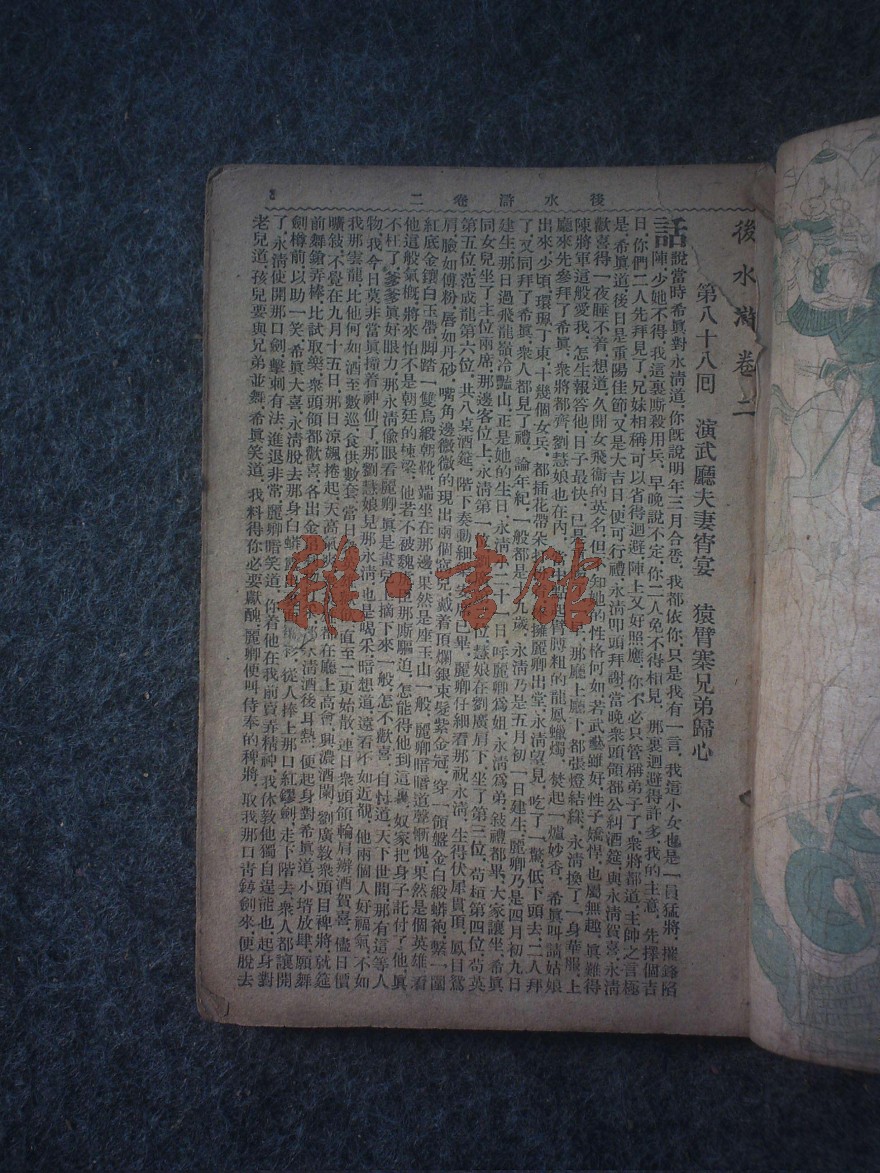 後水滸卷二
第八十八回　演武廳夫妻宵宴　猿臂寨兄弟歸心
話說當時希眞對永淸道、你既說明年三月合巹、我都依你、只是我有一言、我這小女也是一員猛將、擺鋒陷
陣、少她不得、我這裏厮殺用兵、早晚說不定、你二人免不得相見、那裏迴避得許多、我的主意、先擇個吉
日、你們二人先拜見了、兄妹相稱、可以省得迴避、陣上又好照應、你不必只管稱弟子了、衆將都道、主師之言極
是、希眞道、後日是重陽佳節、又是大吉日、便可行禮、永淸叩頭拜謝、當晚衆頭領都公糾酒筵、與永淸賀喜、永淸
歡喜得一夜睡不着、想道、久聞女飛衞的英名、但不知她的性格何如、若武藝雖好、性子嬌悍、也屬無趣、眞難得
陳將軍這般愛我、怎生報答他、日子最快、已是
那廳上廳下、都張燈結綵、永淸換了一身華服、上
廳來先參拜了希眞、衆將都齊、劉慧娘也在內、
臂膊粗的龍鳳蠟燭、焚起一爐妙香、希眞叫請姑娘
出來、少頃環珮丁東、十幾個女兵、都插花帶朵
擁麗卿出堂、永淸望見、吃了一驚、低下頭去、二人拜
了、又同拜了希眞、衆人都見了禮、論年紀、一般都是
九歲、永淸乃是五月初一日建生、麗卿乃是四月初九日
建生、那日過飛龍嶺冷豔山、正是她的生日、永淸
二十
日、呼麗卿爲姐、永淸爲弟、敍禮都畢、大家讓坐、希眞
同女兒坐了主位兩席、那邊客位上、永淸第一
位、慧娘在劉廣肩下、坐了第三位、苟桓第四位、苟英
第五位、范成龍第六位、共八桌酒筵、階下奏動細
安席已畢、麗卿仔細看那祝永淸、生得伏犀貫頂、鳳目鴛
肩、臉如傅粉、唇如丹砂、嘴角邊微微的現出兩個窩兒、戴着頂爛銀束髮紫金冠、穿一領盤金白緞蟒袍、繫一圍
紅底金鑲白玉帶、脚踏一雙烏緞朝靴、端坐在那邊、果然是座玉山一般、麗卿暗暗道聲慚愧、果然是個英雄、看
他這般氣槪、將來怕不是朝廷的棟梁、他若不被魏
那厮驅迫、怎能得他到這裏、奴家把身子託付了他、眞
不枉了、爹爹眞好眼力、那永淸偷眼看麗卿、眞是畫兒
摘下來一般、怎不歡喜、自忖道、天下世間、那有這等人
物、我今日莫非當眞撞着神仙了、那劉慧娘見那永淸、也是喝采、暗想道、遠看不如近覷、他兩個人好福氣、不如
我那雲龍、比他何如、酒至數巡、食供數套、當日
直至二更始散、連日衆頭領輪肩辦酒賀喜、儘日價
曠敍、不覺在九月十五日、那日涼飈捲起、天高氣
都在廳上高會、興濃酒闌、劉廣敎衆頭目裨將就筵
前舞鎗弄棒、比試取樂、衆頭領都歡喜、各出金
永淸酒後耳熱、便起身對希眞道、小壻放肆、願舞
劍樽前、以助一笑、希眞大喜、永淸脫去那身白蟒
從人捧上那口紅鏐劍、走下階去、衆人都讓開
了、永淸使開那口劍、擊刺有法、進退非常、麗卿暗笑道、你着他在我前賣弄精神、我休敎他獨自逞能也、起身對
老兒道、孩兒要與兄弟並舞、希眞笑道、我料得你必要獻醜、麗卿便叫侍奉的裨將、取我那口靑錞劍來、便脫去
後水滸卷二
雜·書館